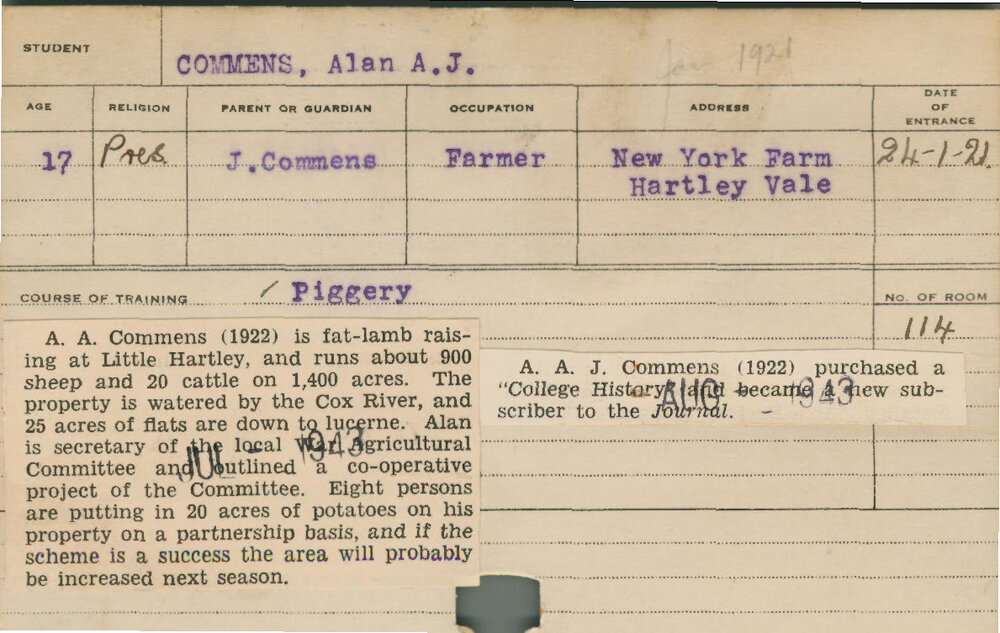 STUDENT
COMMENS, Alan A.J.
Jan 1921
AGE RELIGION PARENT OR GUARDIAN OCCUPATION ADDRESS DATE OF ENTRANCE
17 Pres. J.Commens Farmer New York Farm 24-1-21.
Hartley Vale
COURSE OF TRAINING / Piggery No. OF ROOM
114
A. A. Commens (1922) is fat-lamb rais-
ing at Little Hartley, and runs about 900
sheep and 20 cattle on 1,400 acres. The
property is watered by the Cox River, and
25 acres of flats are down to lucerne. Alan
is secretary of the local War Agricultural
Committee and outlined a co-operative
project of the Committee. Eight persons
are putting in 20 acres of potatoes on his
property on a partnership basis, and if the
scheme is a success the area will probably
be increased next season.
JUL - 1943
A. A. J. Commens (1922) purchased a
"College History" and became a new sub-
scriber to the Journal.
AUG - 1943